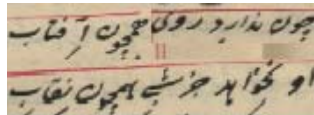 چون ندارد روی همچون آفتاب
او نخواهد جز شبی همچون نقاب